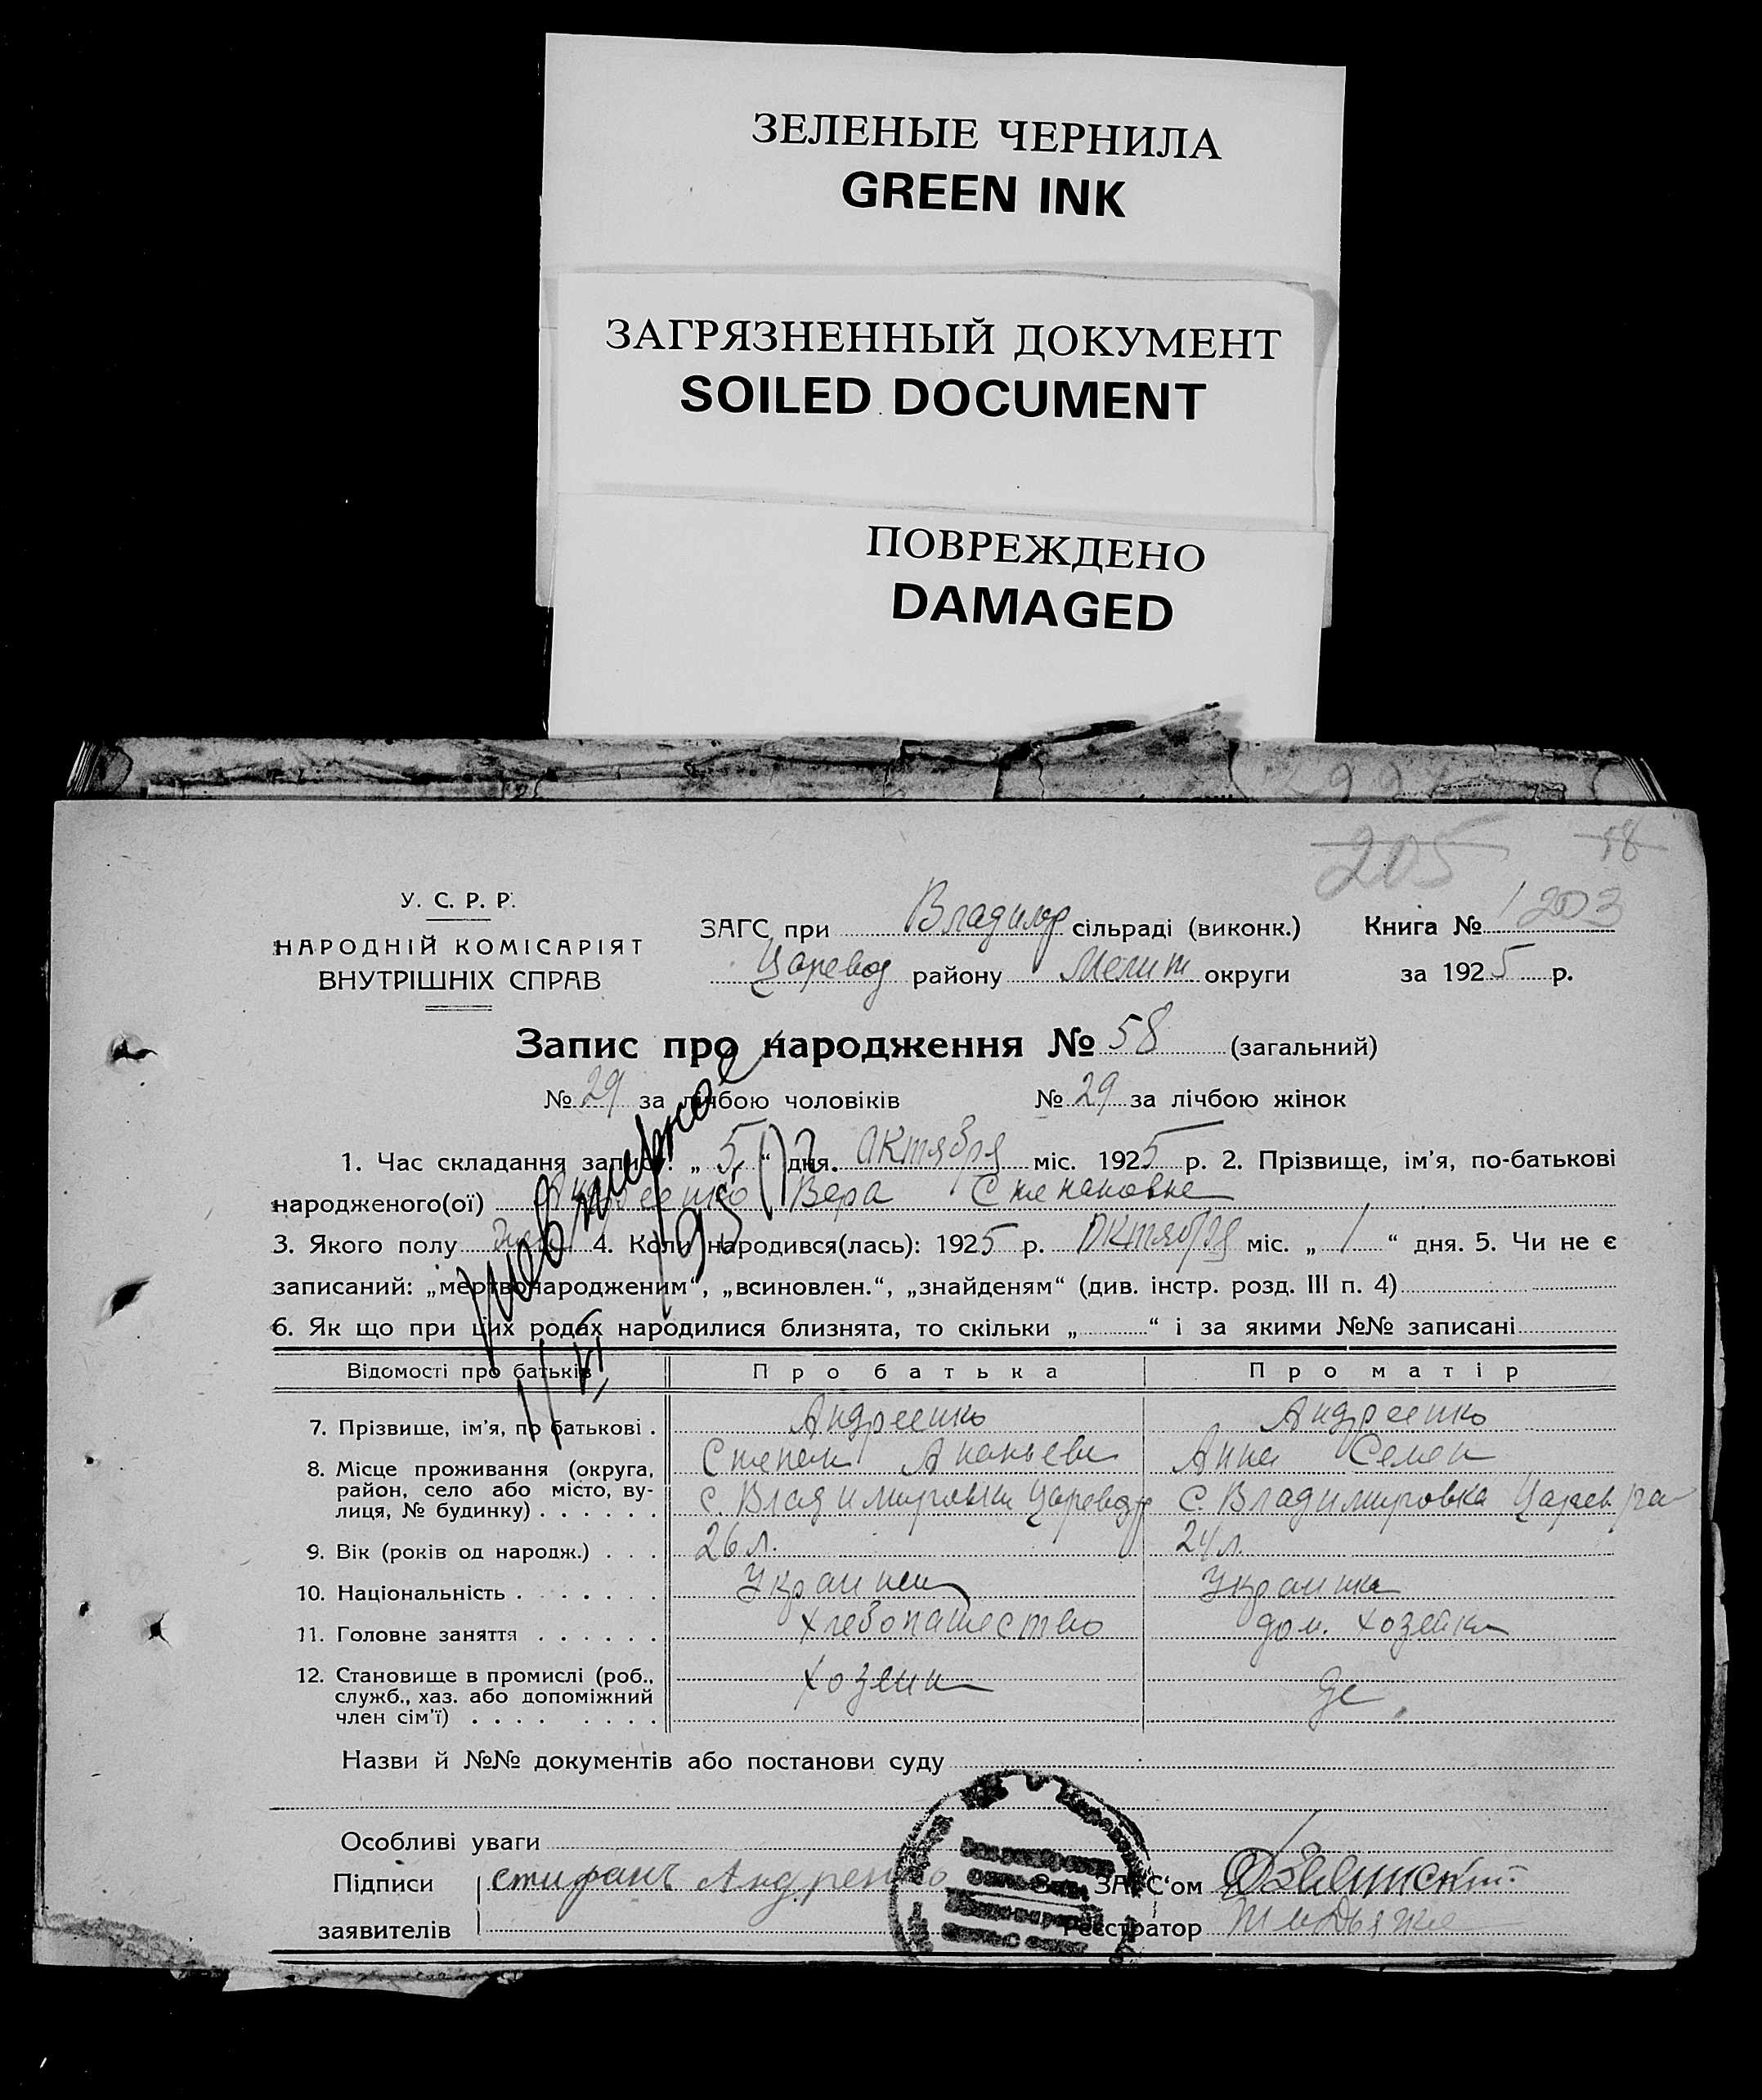 ЗЕЛЕНЫЕ ЧЕРНИЛА
GREEN INK
ЗАГРЯЗНЕННЫЙ ДОКУМЕНТ
SOILED DOCUMENT
ПОВРЕЖДЕНО
DAMAGED
205 58
У. С. Р. Р.
НАРОДНІЙ КОМІСАРІЯТ
ВНУТРІШНІХ СПРАВ
ЗАГС при Владимр сільраді (виконк.) Книга № 203
Царевод району Мелит округи за 1925 р.
Запис про народження № 58 (загальний)
№ 29 за лічбою чоловіків № 29 за лічбою жінок
1. Час складання запису: „ 5 “ дня. Октября міс. 1925 р. 2. Прізвище, ім'я, по-батькові
народженого(ої) Андреенко Вера Степановна
3. Якого полу 4. Коли народився(лась): 1925 р. Октября міс. „ 1 “ дня. 5. Чи не є
записаний: „мертвонародженим“, „всиновлен.“, „знайденям“ (див. інстр. розд. III п. 4)
6. Як що при цих родах народилися близнята, то скільки „ “ і за якими №№ записані
Відомості про батьків Про батька Про матір
7. Прізвище, ім'я, по батькові . Андреенко Андреенко
Степан Ананьев Анна Семен
8. Місце проживання (округа, район, село або місто, вулиця, № будинку) . . . . . . с. Владимировка Царевод р с. Владимировка Царев. р а
9. Вік (років од народж.) . . . 26 л. 24 л.
10. Національність . . . . . . . Украинец Украинка
11. Головне заняття . . . . . . Хлебопашество дом. хозейка
12. Становище в промислі (роб., служб., хаз. або допоміжний член сім'ї) . . . . . . . . Хозеин
Назви й №№ документів або постанови суду
Особливі уваги
Підписи стифанъ Андренко Зав. ЗАГС'ом
заявителів Реєстратор